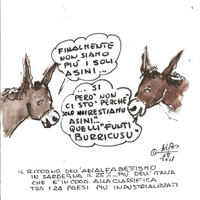 FINALMENTE
NON SIAMO
PIU' I SOLI
ASINI...
... SI
PERO' NON
CI STO' PERCHE'
SOLO NOI RESTIAMO
ASINI...
QUELLI "FUNTI
BURRICUSU"
IL RITORNO DELL'ANALFABETISMO
IN SARDEGNA IL 25% PIÙ DELL'ITALIA
CHE E' IN CODA ALLA CLASSIFICA
TRA I 24 PAESI PIU INDUSTRIALIZZATI